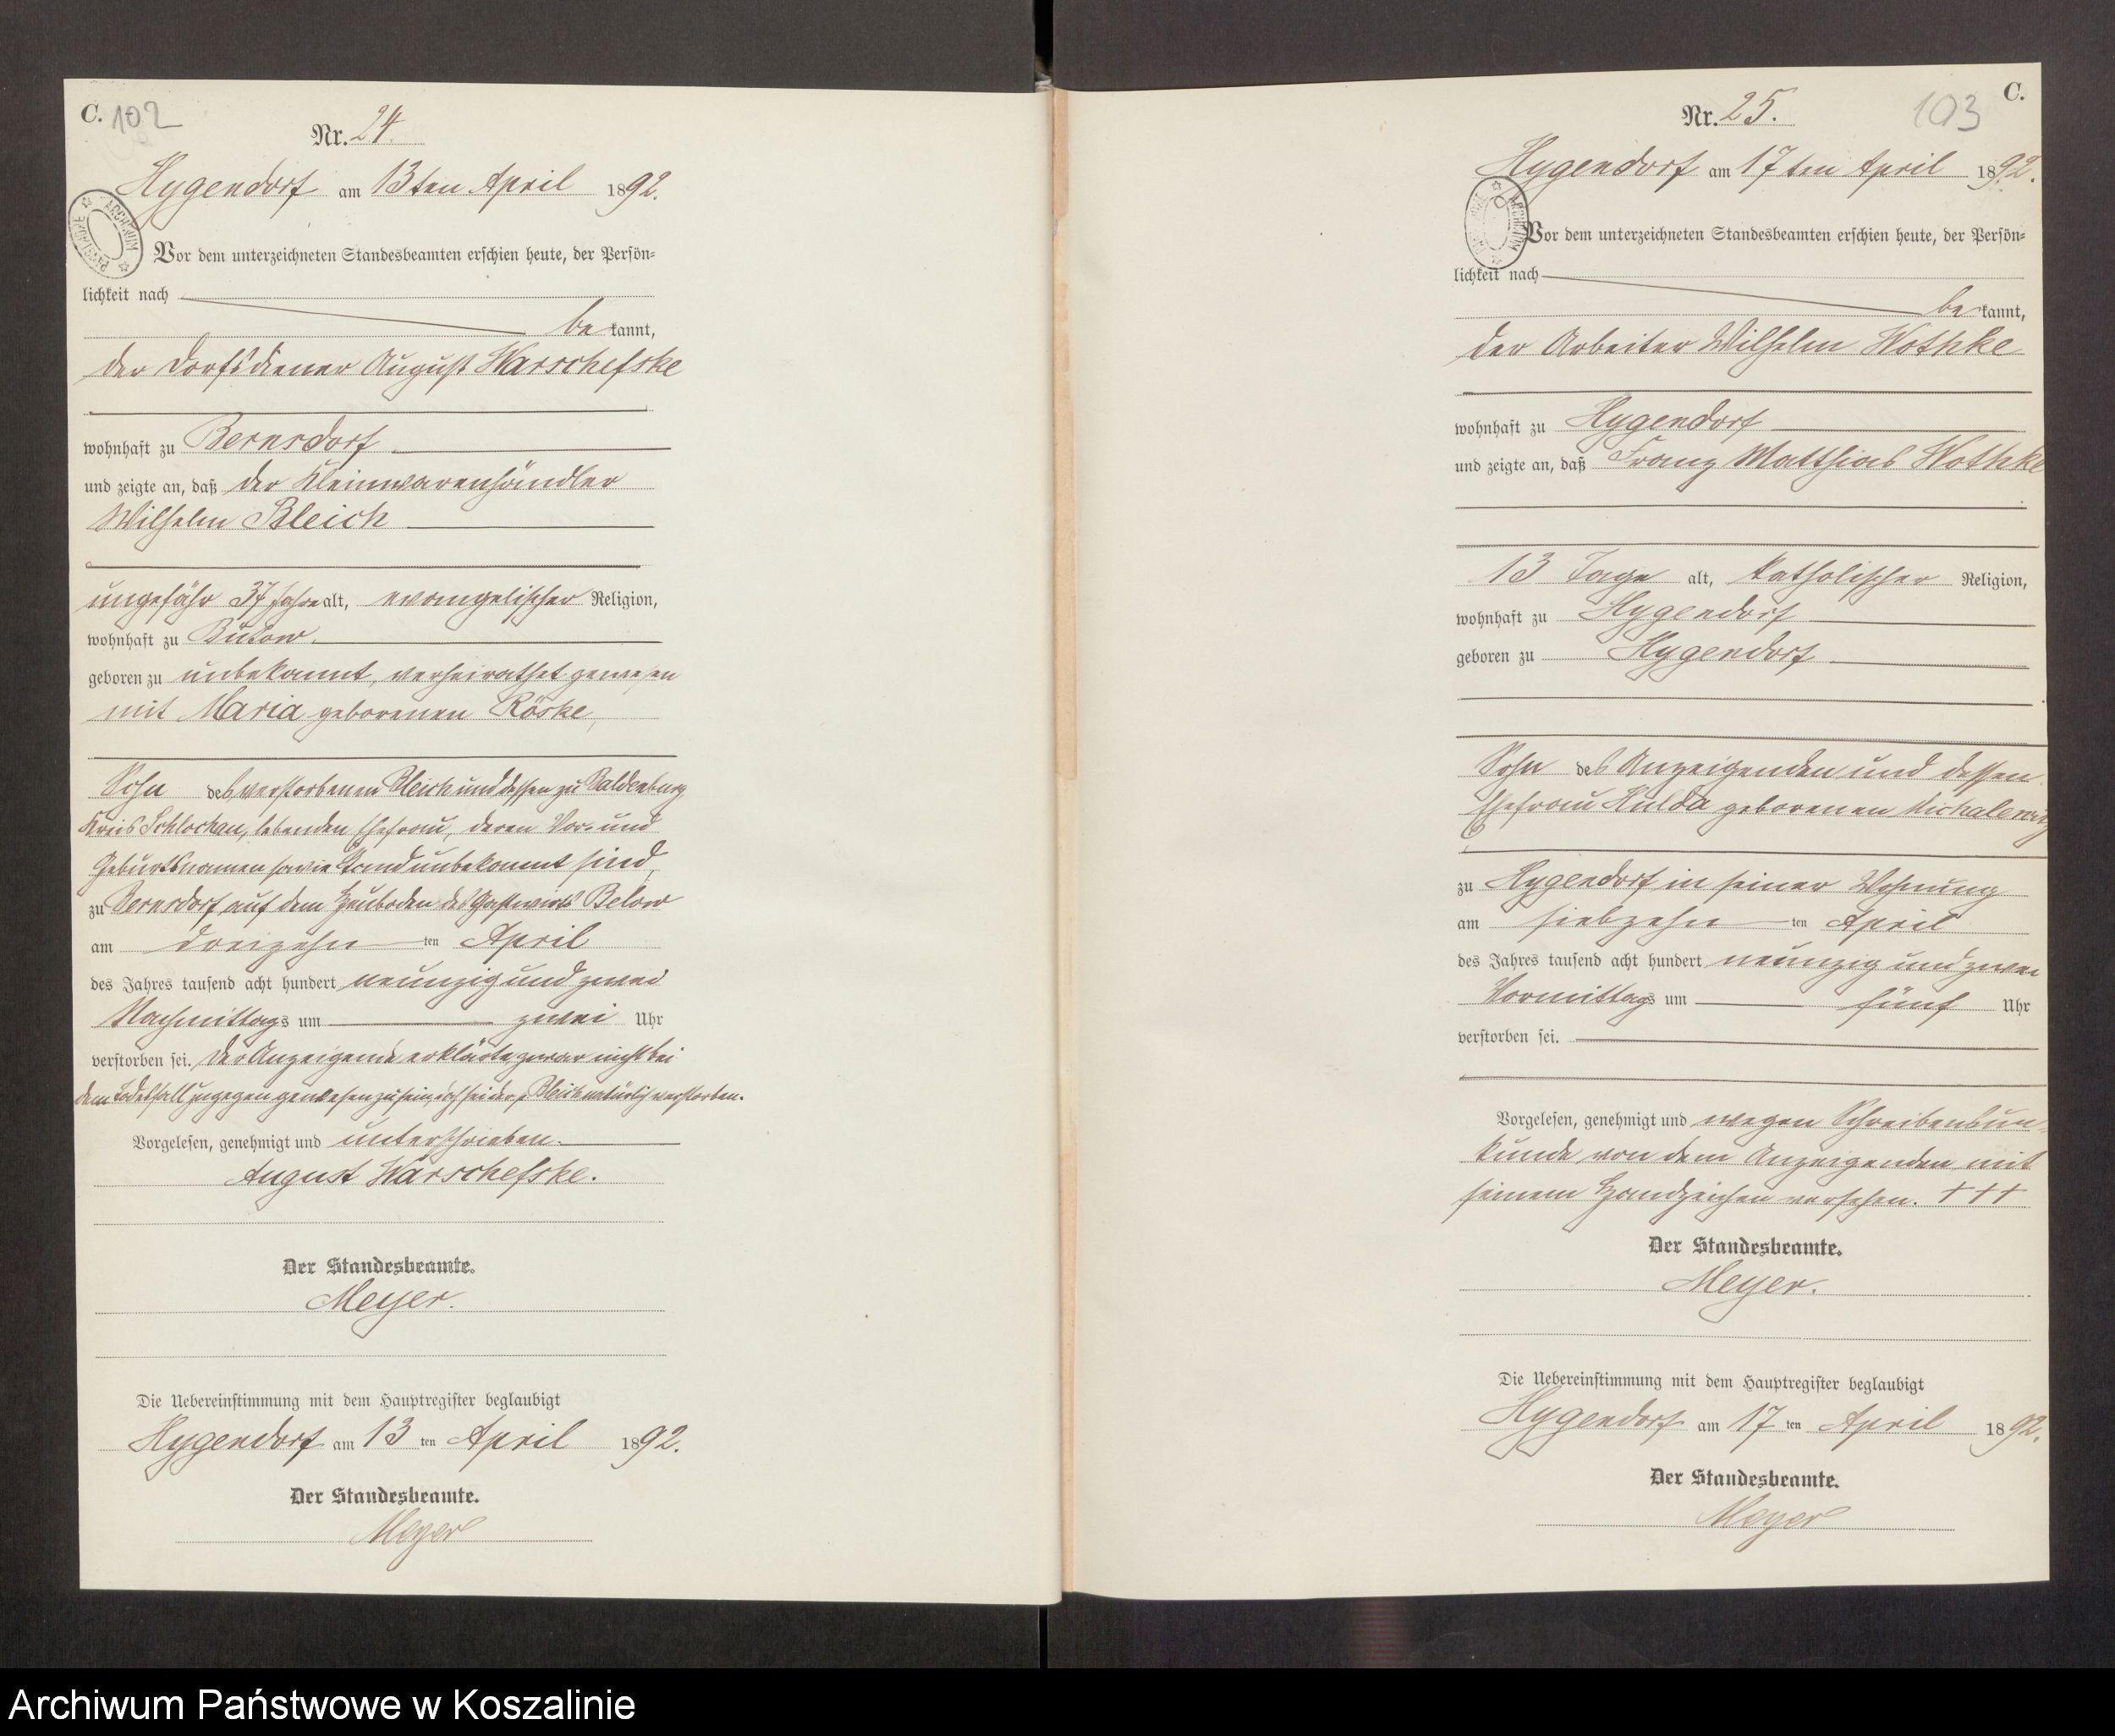 C. 102
Nr. 24.
Hygendorf am 13ten April 1892.
ARCHIWUM PAŃSTWOWE
Vor dem unterzeichneten Standesbeamten erschien heute, der Persön-
lichkeit nach
be kannt,
der Dorfsdiener August Warschefske
wohnhaft zu Bernsdorf
und zeigte an, daß der Kleinwarenhändler
Wilhelm Bleich
ungefähr 37 Jahre alt, evangelischer Religion,
wohnhaft zu Bütow.
geboren zu unbekannt, verheirathet gewesen
mit Maria geborenen Röske,
Sohn des verstorbenen Bleich und dessen zu Baldenburg
Kreis Schlochau, lebenden Ehefrau, deren Vor- und
Geburtsnamen sowie Stand unbekannt sind,
zu Bernsdorf auf dem Heuboden des Gastwirts Below
am dreizehn ten April
des Jahres tausend acht hundert neunzig und zwei
Nachmittags um zwei Uhr
verstorben sei. Der Anzeigende erklärte zwar nicht bei
dem Todesfall zugegen gewesen zu sein, doch sei der Bleich natürlich verstorben.
Vorgelesen, genehmigt und unterschrieben.
August Warschefske.
Der Standesbeamte.
Meyer.
Die Uebereinstimmung mit dem Hauptregister beglaubigt
Hygendorf am 13 ten April 1892.
Der Standesbeamte.
Meyer
103 C.
Nr. 25.
Hygendorf am 17ten April 1892.
Vor dem unterzeichneten Standesbeamten erschien heute, der Persön-
lichkeit nach
be kannt,
der Arbeiter Wilhelm Wothke
wohnhaft zu Hygendorf
und zeigte an, daß Franz Matthias Wothke
13 Tage alt, katholischer Religion,
wohnhaft zu Hygendorf
geboren zu Hygendorf
Sohn des Anzeigenden und dessen
Ehefrau Hulda geborenen
zu Hygendorf in seiner Wohnung
am siebzehn ten April
des Jahres tausend acht hundert neunzig und zwei
Vormittags um fünf Uhr
verstorben sei.
Vorgelesen, genehmigt und wegen Schreibensun-
kunde von dem Anzeigenden mit
seinem Handzeichen versehen. + + +
Der Standesbeamte.
Meyer.
Die Uebereinstimmung mit dem Hauptregister beglaubigt
Hygendorf am 17 ten April 1892.
Der Standesbeamte.
Meyer
Archiwum Państwowe w Koszalinie